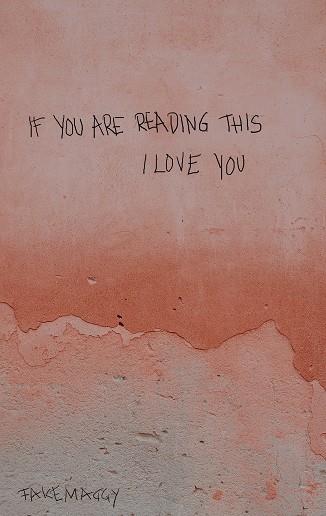 IF YOU ARE READING THIS
I LOVE YOU
FAKEMAGGY